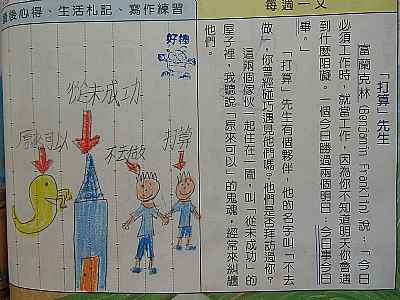 每週一文
「打算」先生
富蘭克林 (Benjamin Franklin) 說：「今日
必須工作時，就當工作，因為你不知道明天你會遇
到什麼阻礙。一個今日勝過兩個明日；今日事今日
畢。」
「打算」先生有個夥伴，他的名字叫「不去
做」，你曾經碰巧遇見他們嗎？他們是否拜訪過你？
這兩個傢伙一起住在一間，叫「從未成功」的
屋子裡，我聽說「原來可以」的鬼魂，經常來糾纏
他們。
後心得、生活札記、寫作練習
好棒
從未成功
原來可以
不去做
打算